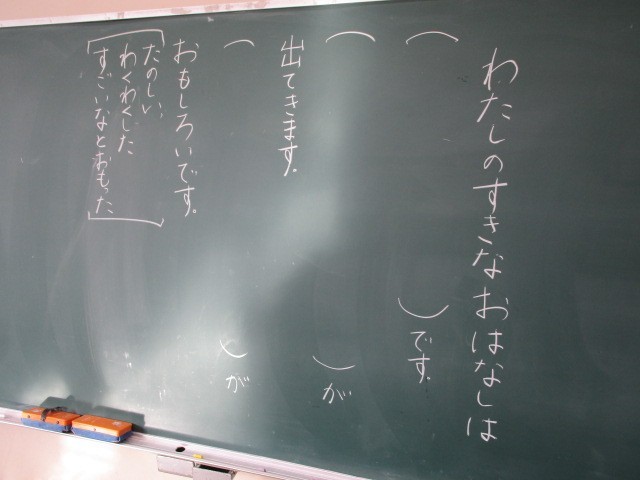 わたしのすきなおはなしは
（　　　　　　）です。
（　　　　　　）が
出てきます。
（　　　　　　）が
おもしろいです。
たのしい、
わくわくした
すごいなとおもった